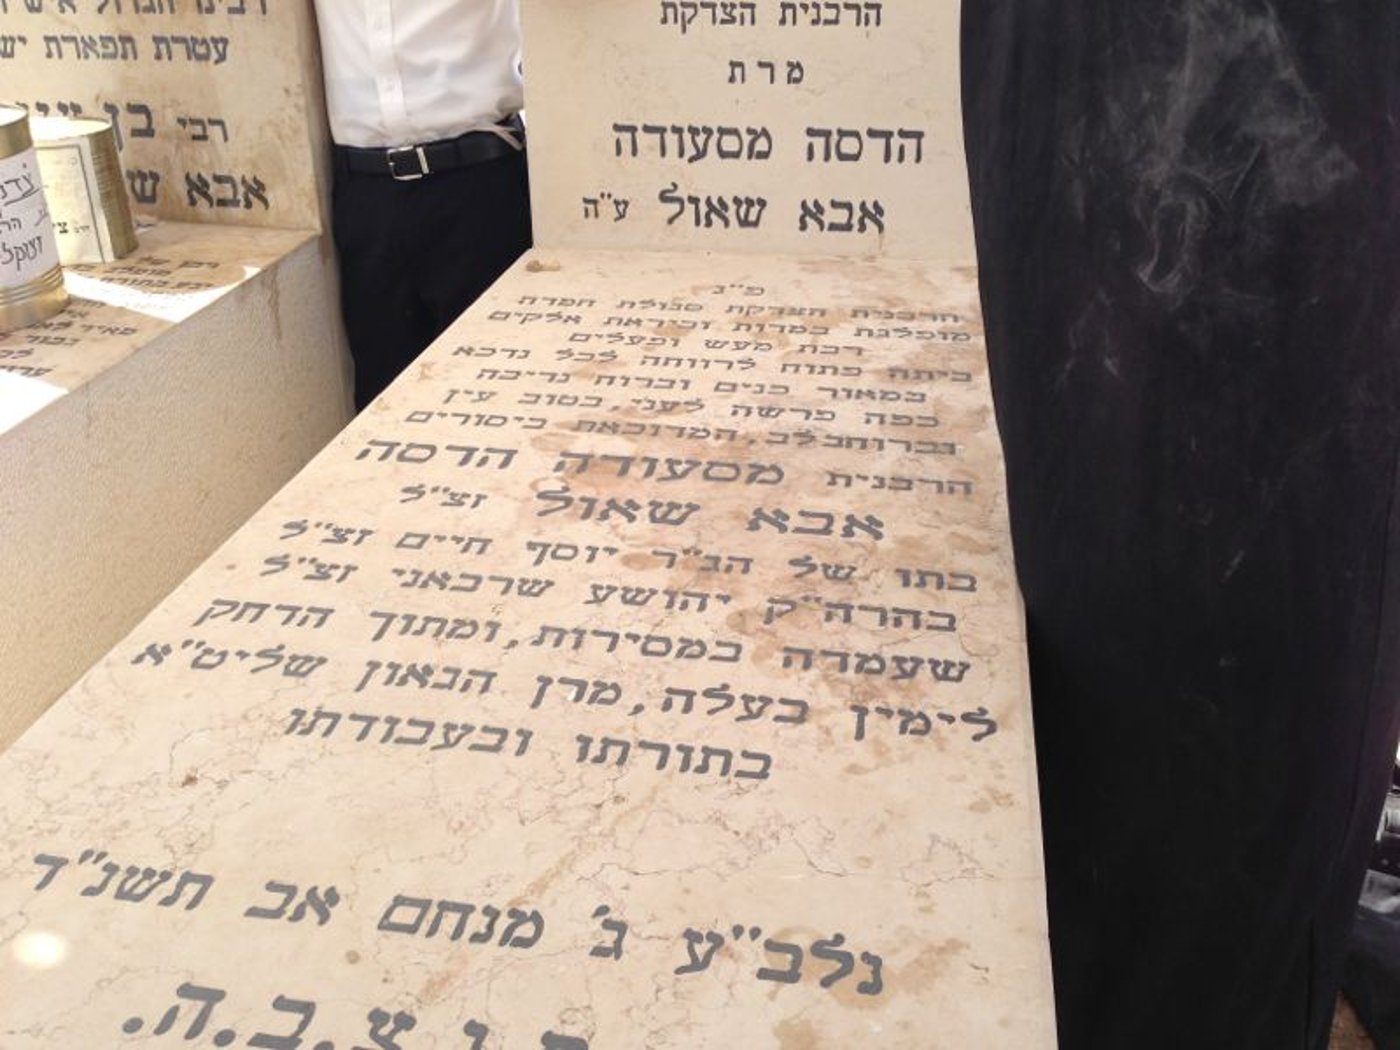 הרבנית הצדקת
מרת
הדסה מסעודה
אבא שאול ע"ה
פ"נ
הרבנית הצדקת סגולת חמדה
מופלגת במדות וביראת אלקים
רבת מעש ופעלים
ביתה פתוח לרווחה לכל נדכא
במאור פנים וברוח נדיבה
כפה פרשה לעני, בטוב עין
וברוחב לב, המדוכאת ביסורים
הרבנית מסעודה הדסה
אבא שאול זצ"ל
בתו של הג"ר יוסף חיים זצ"ל
בהרה"ק יהושע שרבאני זצ"ל
שעמדה במסירות, ומתוך הדחק
לימין בעלה, מרן הגאון שליט"א
בתורתו ובעבודתו
נלב"ע ג' מנחם אב תשנ"ד
צ.ב.ה.
עטרת תפארת
רבי בן
אבא